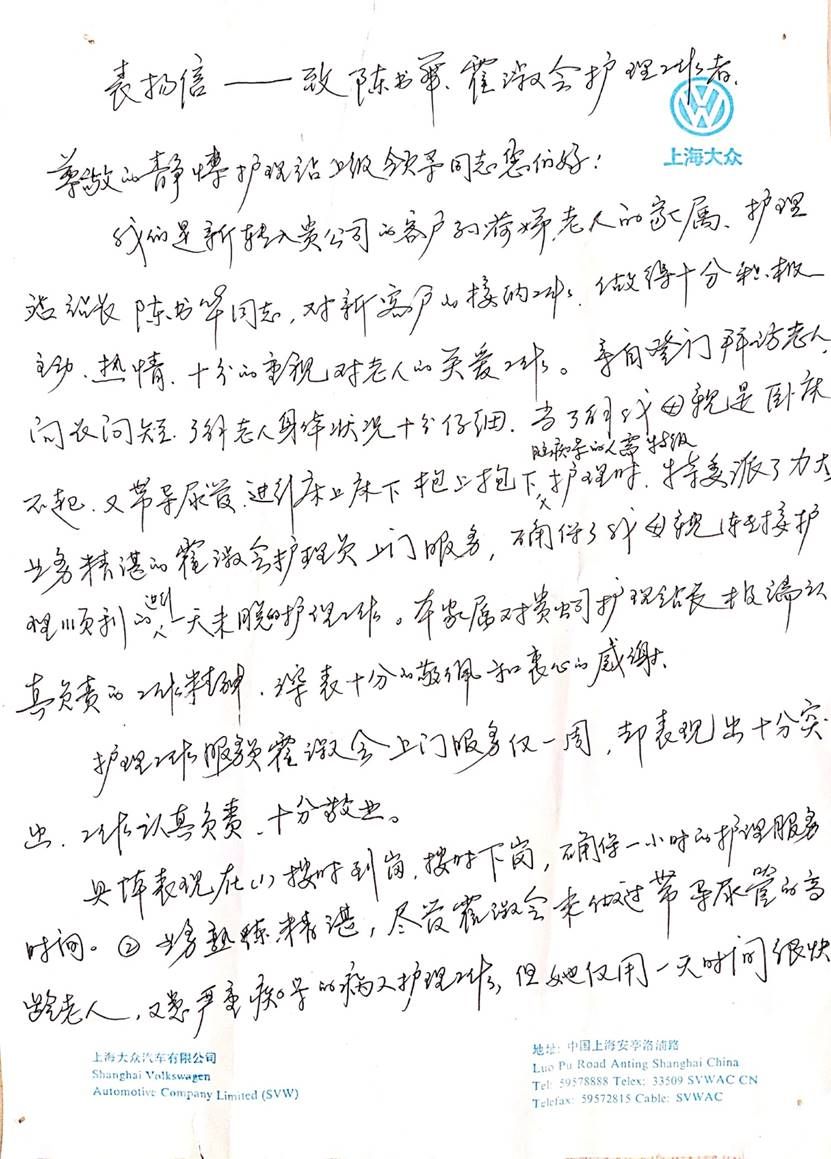 表扬信——致陈书華、霍淑会护理工作者.
上海大众
尊敬的静博护理站上级领导同志您们好!
我们是新转入贵公司的客户孙荷娣老人的家属、护理
站站长陈书华同志,对新客户的接纳工作、做得十分积极
主动、热情、十分的重视对老人的关爱工作。亲自登门拜访老人,
问长问短、了解老人身体状况十分仔细、当了解我母亲是卧床
的人需特级
不起、又带导尿管、进行床上床下抱上抱下护理时、特委派了力大
业务精湛的霍淑会护理员上门服务,确保了我母亲转接护
理顺利的进行一天未脱的护理工作。本家属对贵公司护理站长极端认
真负责的工作精神、深表十分的敬佩和衷心的感谢.
护理工作服务员霍淑会上门服务仅一周,却表现出十分突
出、工作认真负责、十分敬业。
具体表现在(1)按时到岗、按时下岗,确保一小时的护理服务
时间。②业务熟练精湛,尽管霍淑会未做过带导尿管的高
龄老人,又患严重疾号的病人护理工作,但她仅用一天时间很快
上海大众汽车有限公司
Shanghai Volkswagen
Automotive Company Limited (SVW)
地址: 中国上海安亭洛浦路
Luo Pu Road Anting Shanghai China
Tel: 59578888 Telex: 33509 SVWAC CN
Telefax: 59572815 Cable: SVWAC